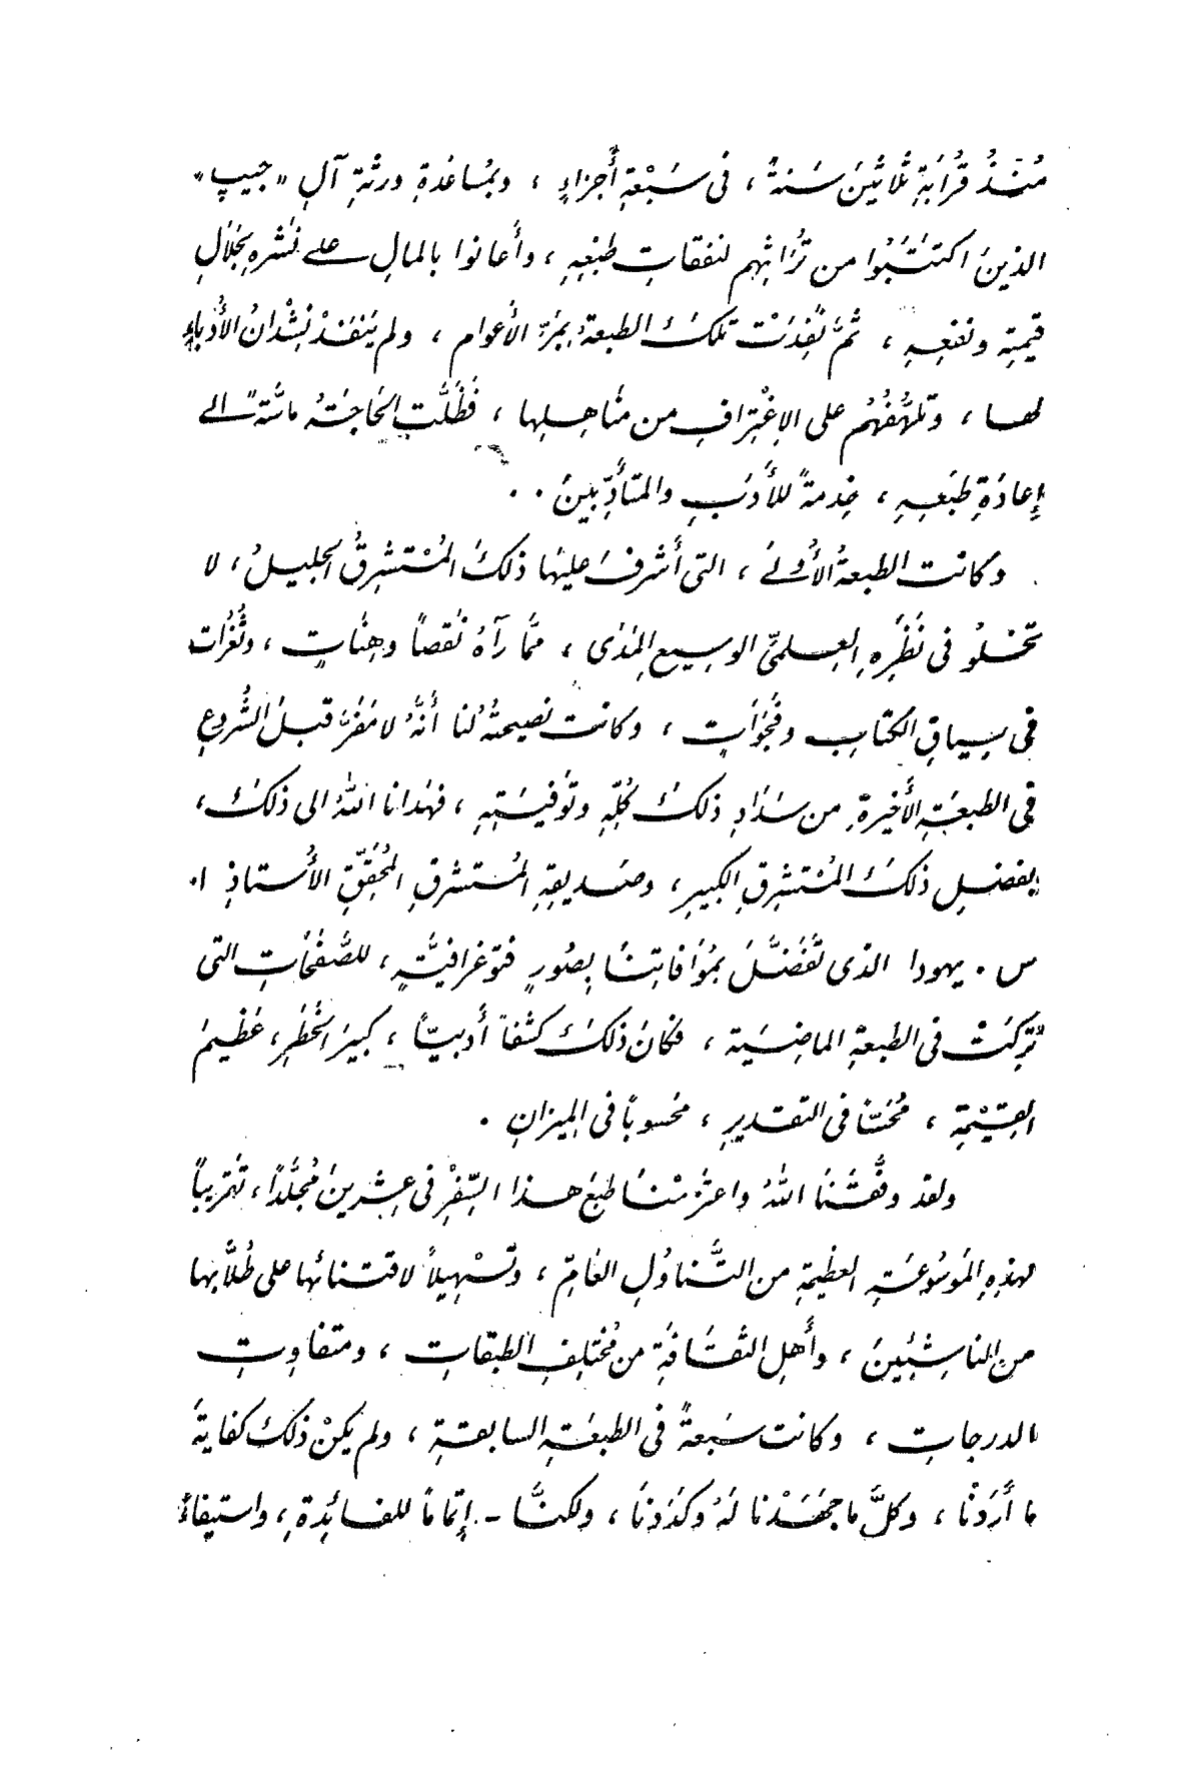 مُنْذُ قُرَابَةِ ثَلَاثِينَ سَنَةً ، فى سَبْعَةِ أَجْزاءٍ ، وبِمُسَاعَدَةِ ورثةِ آلِ « جيب »
الذينَ اكتَتَبُوا من تُرَاثِهِم لنفقاتِ طَبْعِهِ ، وأَعانوا بالمالِ على نَشْرِهِ لِجَلَالِ
قيمتِهِ ونفعِهِ ، ثُمَّ نَفِدَتْ تلكَ الطبعةُ بِمَرِّ الأعوام ، ولم يَنْفَدْ نِشْدانُ الأُدباءِ
لها ، وتَلَهُّفُهُم على الاِغْتِرافِ من مَنَاهِلِها ، فَظَلَّتِ الحَاجَةُ ماسَّةً الى
إعادَةِ طَبْعِهِ ، خِدمةً للأَدَبِ والمتأَدِّبينَ . .
وكانت الطبعةُ الأُولَى ، التى أَشْرفَ عليها ذلكَ المُسْتَشْرِقُ الجليلُ ، لا
تَخْلُو فى نَظَرِهِ العِلمىِّ الوسيعِ المَدَى ، مَّما رَآهُ نَقصاً وهِنَاتٍ ، وثُغُرات
فى سِياقِ الكتابِ وفَجَوَاتٍ ، وكانت نصيحتهُ لنا أنَّهُ لا مَفَرَّ قبلَ الشُّروعِ
فى الطبعَةِ الأخيرةِ من سَدَادِ ذلكَ كُلِّهِ وتَوْفِيَتِهِ ، فهَدانا اللهُ الى ذلكَ ،
بفضلِ ذلكَ المُسْتَشْرِقِ الكبيرِ ، وصَديقِهِ المُستشرقِ المُحَقِّقِ الأُستاذِ ا.
س . يهودا الذى تَفَضَّلَ بمُوَافاتِنَا بِصُورٍ فتوغرافيَّةٍ ، للصَّفَحَاتِ التى
تُرِكَتْ فى الطبعةِ الماضِيَة ، فكانَ ذلكَ كشفاً أدبيّاً ، كبيرَ الخَطَرِ ، عَظِيمَ
القِيْمَةِ ، مُحَتَّما فى التقديرِ ، محسوباً فى الميزانِ .
ولقد وفَّقَنَا اللهُ واعتزَمْنَا طبعَ هذا السِّفْرِ فى عِشرينَ مُجَلَّداً ، تقريباً
لهذِهِ المَوسُوعَةِ العظيمةِ من التَّناوُلِ العَامِّ ، وتَسْهِيلاً لاقتنائها على طُلَّابها
من الناشِئِينَ ، وأَهلِ الثَّقَافَةِ من مُختلِفِ الطبقَاتِ ، ومتفاوِتِ
الدرجاتِ ، وكانت سَبعةً فى الطبعَةِ السابقةِ ، ولم يكنْ ذلكَ كفايةَ
ما أَرَدْنَا ، وكلَّ ما جَهَدْنا لَهُ وكَدَدْنَا ، ولكنَّا - إتماماً للفائِدةِ ، واستيفاءً